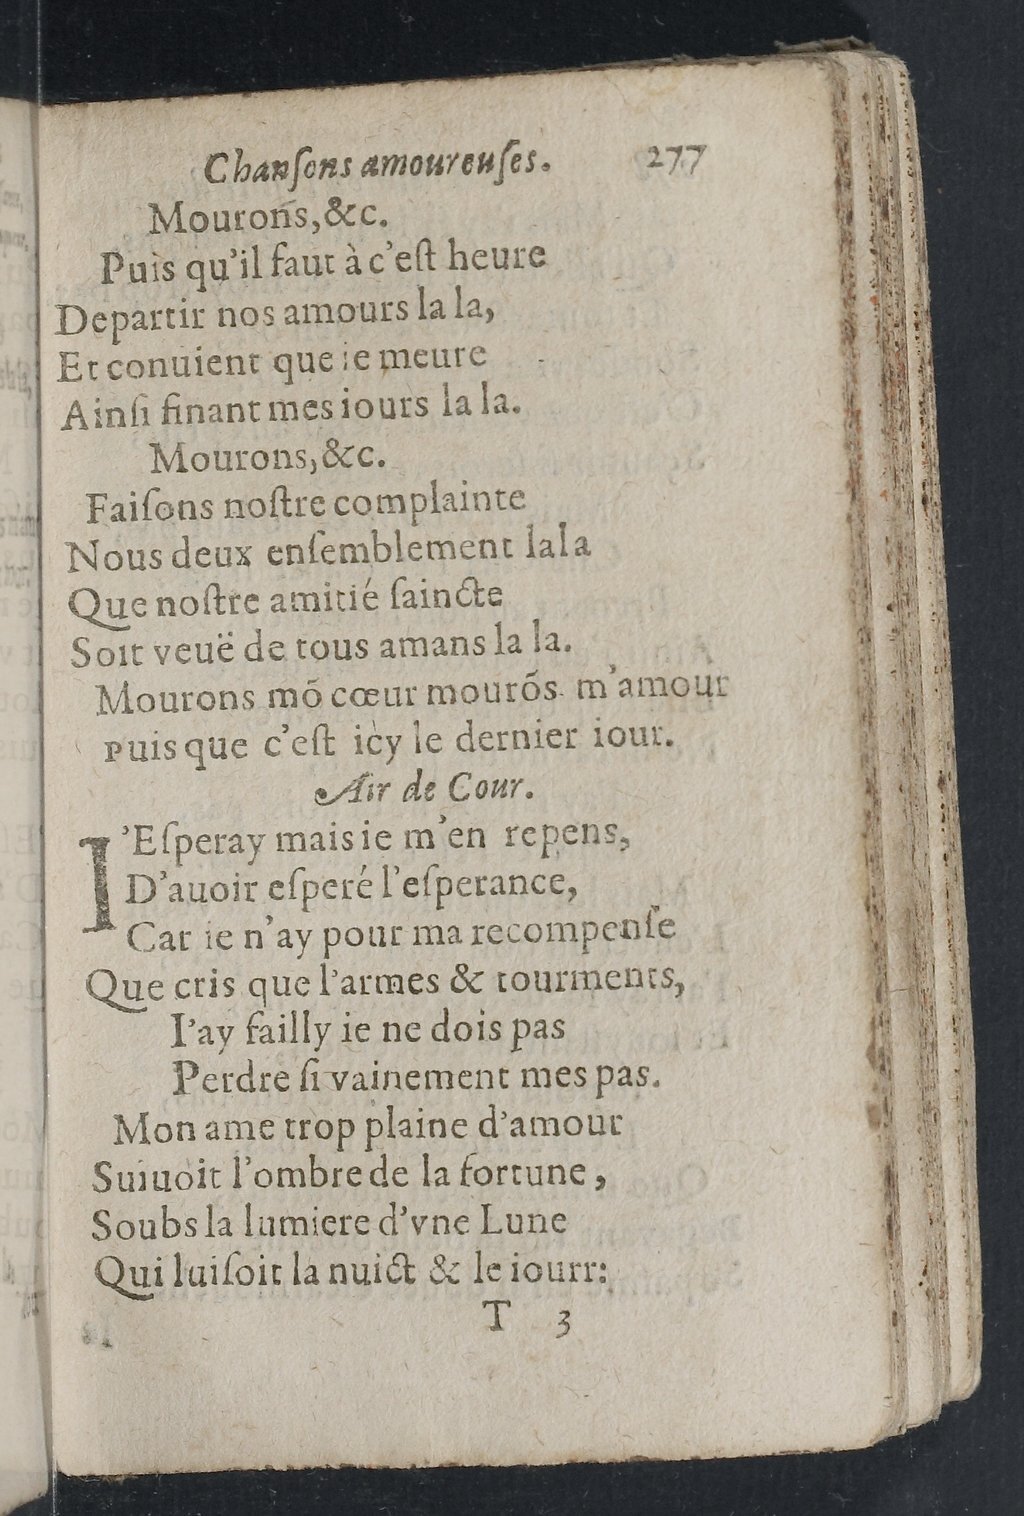 Chanſons amoureuſes. 277
Mourons,&c.
Puis qu'il faut à c'eſt heure
Departir nos amours la la,
Et conuient que ie meure
Ainſi finant mes iours la la.
Mourons,&c.
Faiſons noſtre complainte
Nous deux enſemblement lala
Que noſtre amitié ſaincte
Soit veuë de tous amans la la.
Mourons mõ cœur mourõs m'amour
Puis que c'eſt icy le dernier iour.
Air de Cour.
I'Eſperay mais ie m'en repens,
D'auoir eſperé l'eſperance,
Car ie n'ay pour ma recompenſe
Que cris que l'armes & tourments,
I'ay failly ie ne dois pas
Perdre ſi vainement mes pas.
Mon ame trop plaine d'amour
Suiuoit l'ombre de la fortune,
Soubs la lumiere d'vne Lune
Qui luiſoit la nuict & le iourr:
T 3